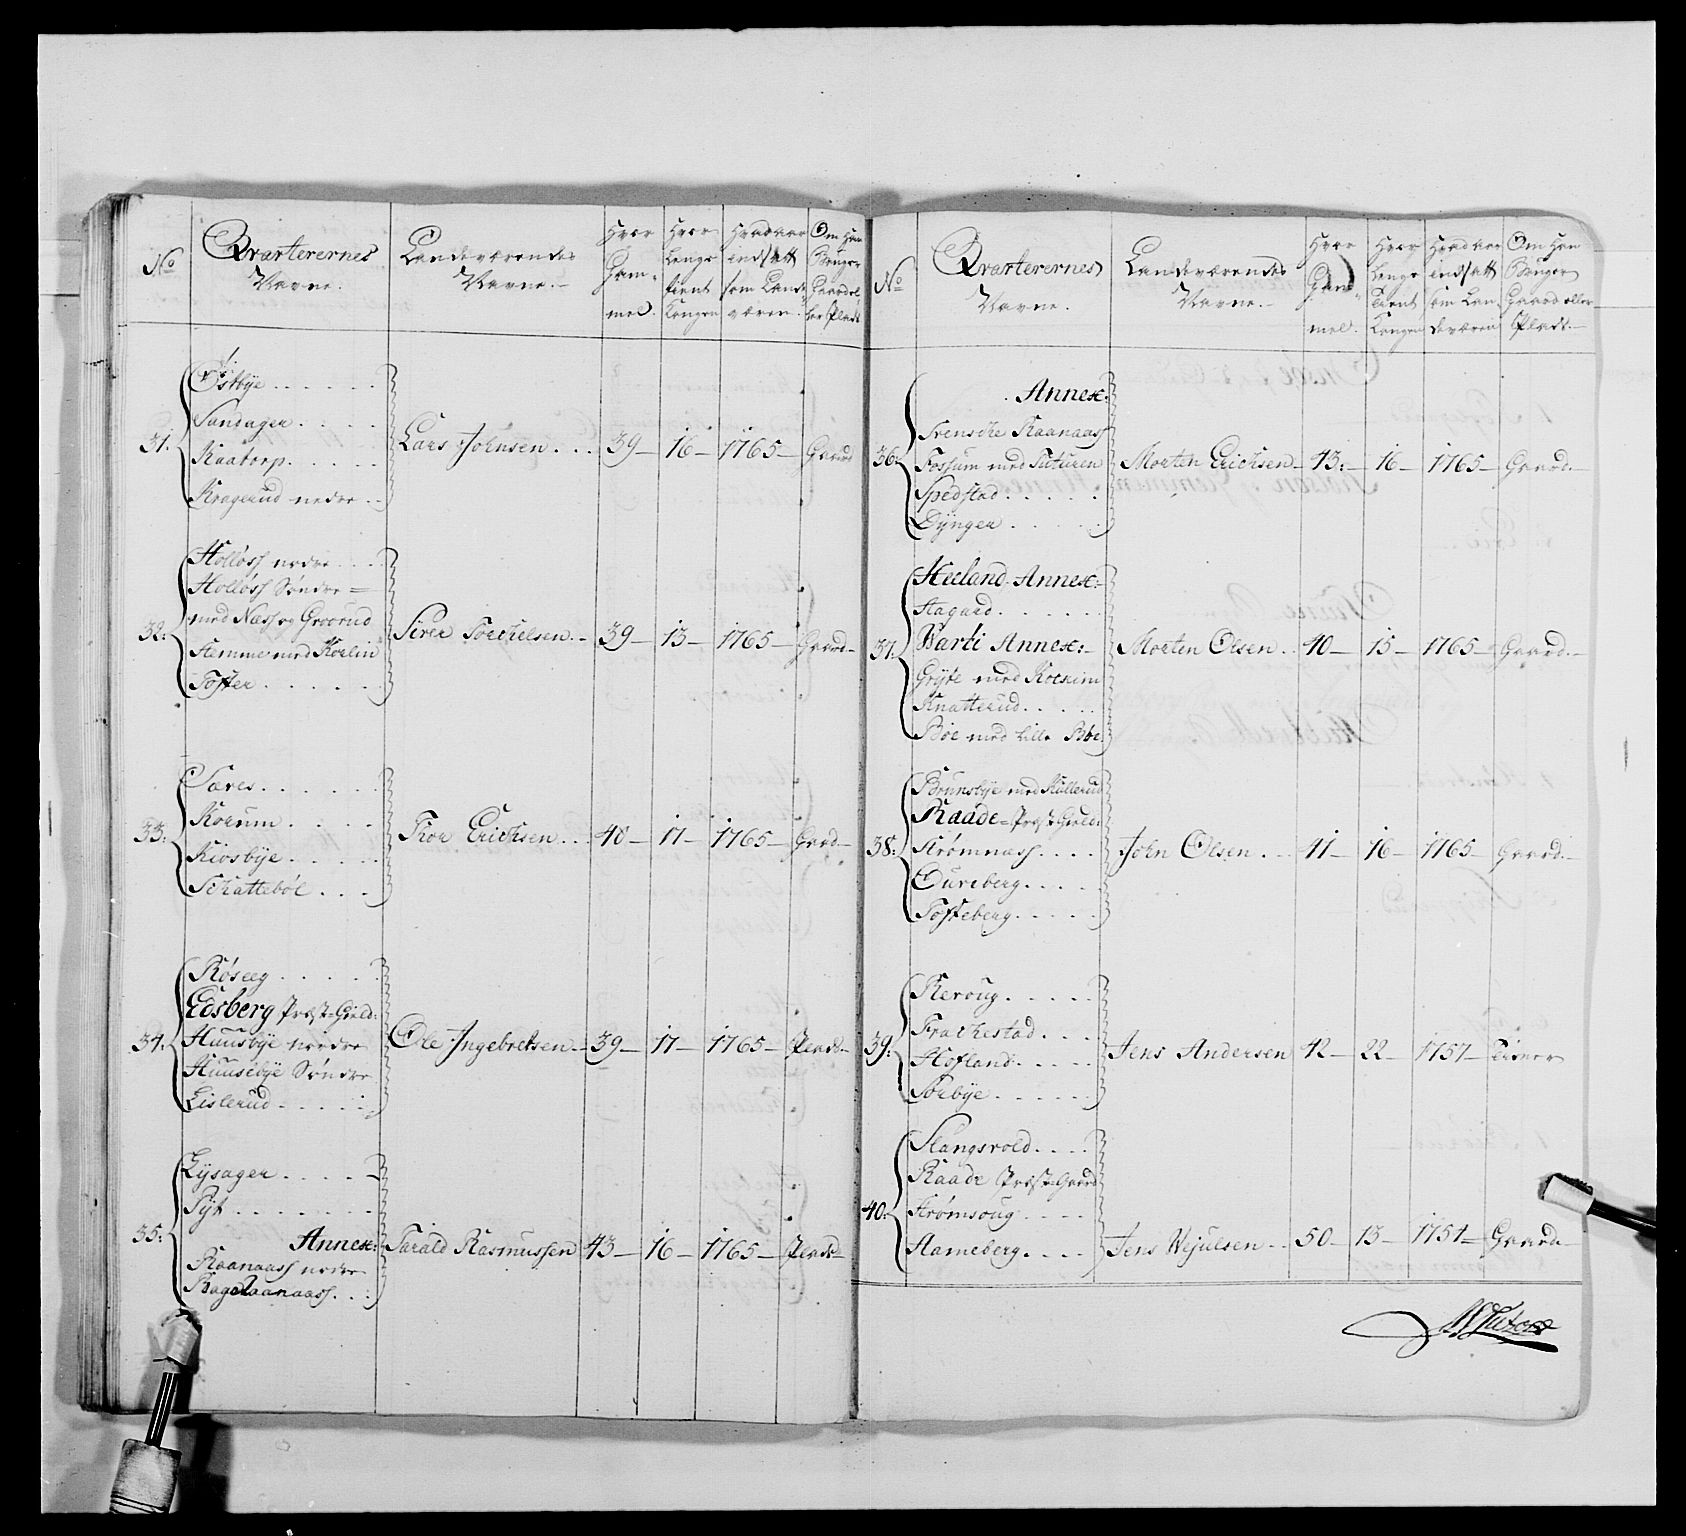 No
Qvarterernes Navne.
Landeværendes Navne.
Hvor Gam- mel.
Hvor Lenge tient Kongen
Hvad aar indsatt som Lande væren.
Om Han Bruger Gaard el- ler Plads
31.
Østbye
Sandager
Kaatorp
Kragerud nedre
Lars Johnsen 39 16 1765 Gaard
32:
Holløss nedre
Holløss Søndre
med Næss og Groorud
Hemme med Korlin
Tofter
Siver Torchelsen 39 13 1765 Gaard
33:
Sæves
Korum
Kiosbye
Schattebøl
Thor Erichsen 40 17 1765 Gard
34:
Røseeg
Edsberg Præst-Gield:
Huusbye nordre
Huusebye Søndre
Lislerud
Ole Ingebretsen 39 17 1765 Plads
35:
Lysager
Syt
Annex:
Raanaass nedre
Bagaraanaass
Tarald Rasmussen 43 16 1765 Plads
No
Qvarterernes Navne.
Landeværendes Navne.
Hvor Gam- mel.
Hvor Lenge Tient Kongen
Hvad aar indsatt som Lan- deværen
Om Han Bruger Gaard eller Plads
36:
Annex:
Svensche Raanaass
Fossum med Tuturen
Spedstad
Dynger
Morten Erichsen 43: 16 1765 Gaard.
37:
Heeland Annex:
Aagard
Warti Annex:
Gryte med Kolnim
Knatterud
Bøe med lille Bøe
Morten Olsen 40 15 1765 Gaard.
38:
Brunsbye med Kullerud
Raade Præst-Gield:
Strømnass
Dureberg
Tofteberg
John Olsen 41 16 1765 Gaard.
39:
Keroug
Frachestad
Hofland
Sørbye
Jens Andersen 42 22 1757 Tiener
40:
Slangsvold
Raade Præst-Gaard
Strømsoug
Aameberg
Jens Wejulsen 50 13 1754 Gaard